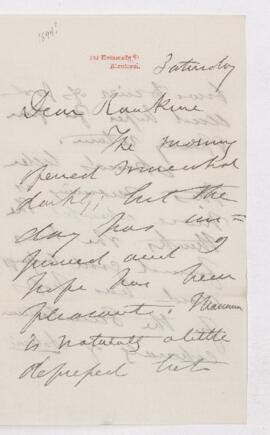 1894?
Montreal.
Saturday
Dear Rankine
The morning
opened somewhat
darkly, but the
day has im=
proved and I
hope has been
pleasant. Mamma
is naturally a little
depressed but